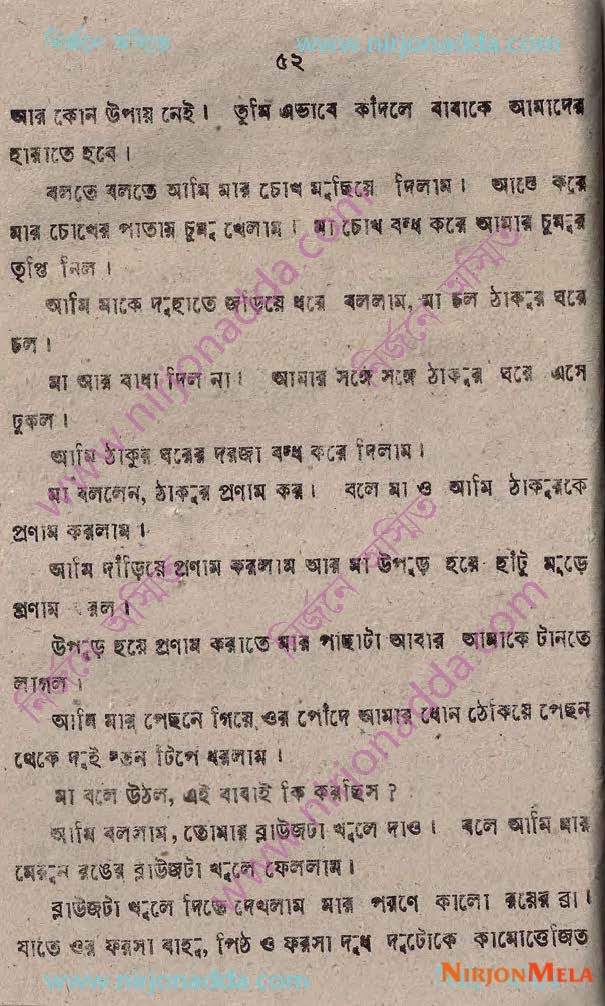 নির্জনে অস্মিত www.nirjonadda.com
৫২
আর কোন উপায় নেই। তুমি এভাবে কাঁদলে বাবাকে আমাদের
হারাতে হবে।
বলতে বলতে আমি মার চোখ মুছিয়ে দিলাম। আস্তে করে
মার চোখের পাতায় চুমু খেলাম। মা চোখ বন্ধ করে আমার চুমুর
তৃপ্তি নিল।
আমি মাকে দুহাতে জড়িয়ে ধরে বললাম, মা চল ঠাকুর ঘরে
চল।
মা আর বাধা দিল না। আমার সঙ্গে সঙ্গে ঠাকুর ঘরে এসে
ঢুকল।
আমি ঠাকুর ঘরের দরজা বন্ধ করে দিলাম।
মা বললেন, ঠাকুর প্রণাম কর। বলে মা ও আমি ঠাকুরকে
প্রণাম করলাম।
আমি দাঁড়িয়ে প্রণাম করলাম আর মা উপুড় হয়ে হাঁটু মুড়ে
প্রণাম করল।
উপুড় হয়ে প্রণাম করাতে মার পাছাটা আবার আমাকে টানতে
লাগল।
আমি মার পেছনে গিয়ে ওর পোঁদে আমার ধোন ঠেকিয়ে পেছন
থেকে দুই স্তন টিপে ধরলাম।
মা বলে উঠল, এই বাবাই কি করছিস?
আমি বললাম, তোমার ব্লাউজটা খুলে দাও। বলে আমি মার
মেরুন রঙের ব্লাউজটা খুলে ফেললাম।
ব্লাউজটা খুলে দিতে দেখলাম মার পরণে কালো রয়ের ব্রা।
যাতে ওর ফরসা বাহু, পিঠ ও ফরসা দুধ দুটোকে কামোত্তেজিত
www.nirjonadda.com www.nirjonadda.com
NIRJONMELA